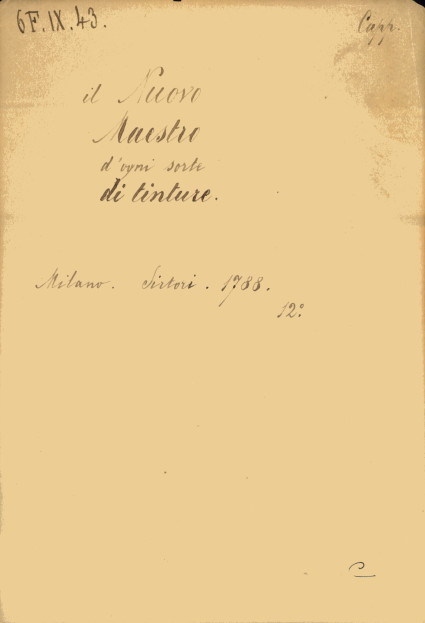 6F.IX.43.
Capp.
il Nuovo
Maestro
d'ogni sorte
di tinture.
Milano. Sirtori. 1788.
12º